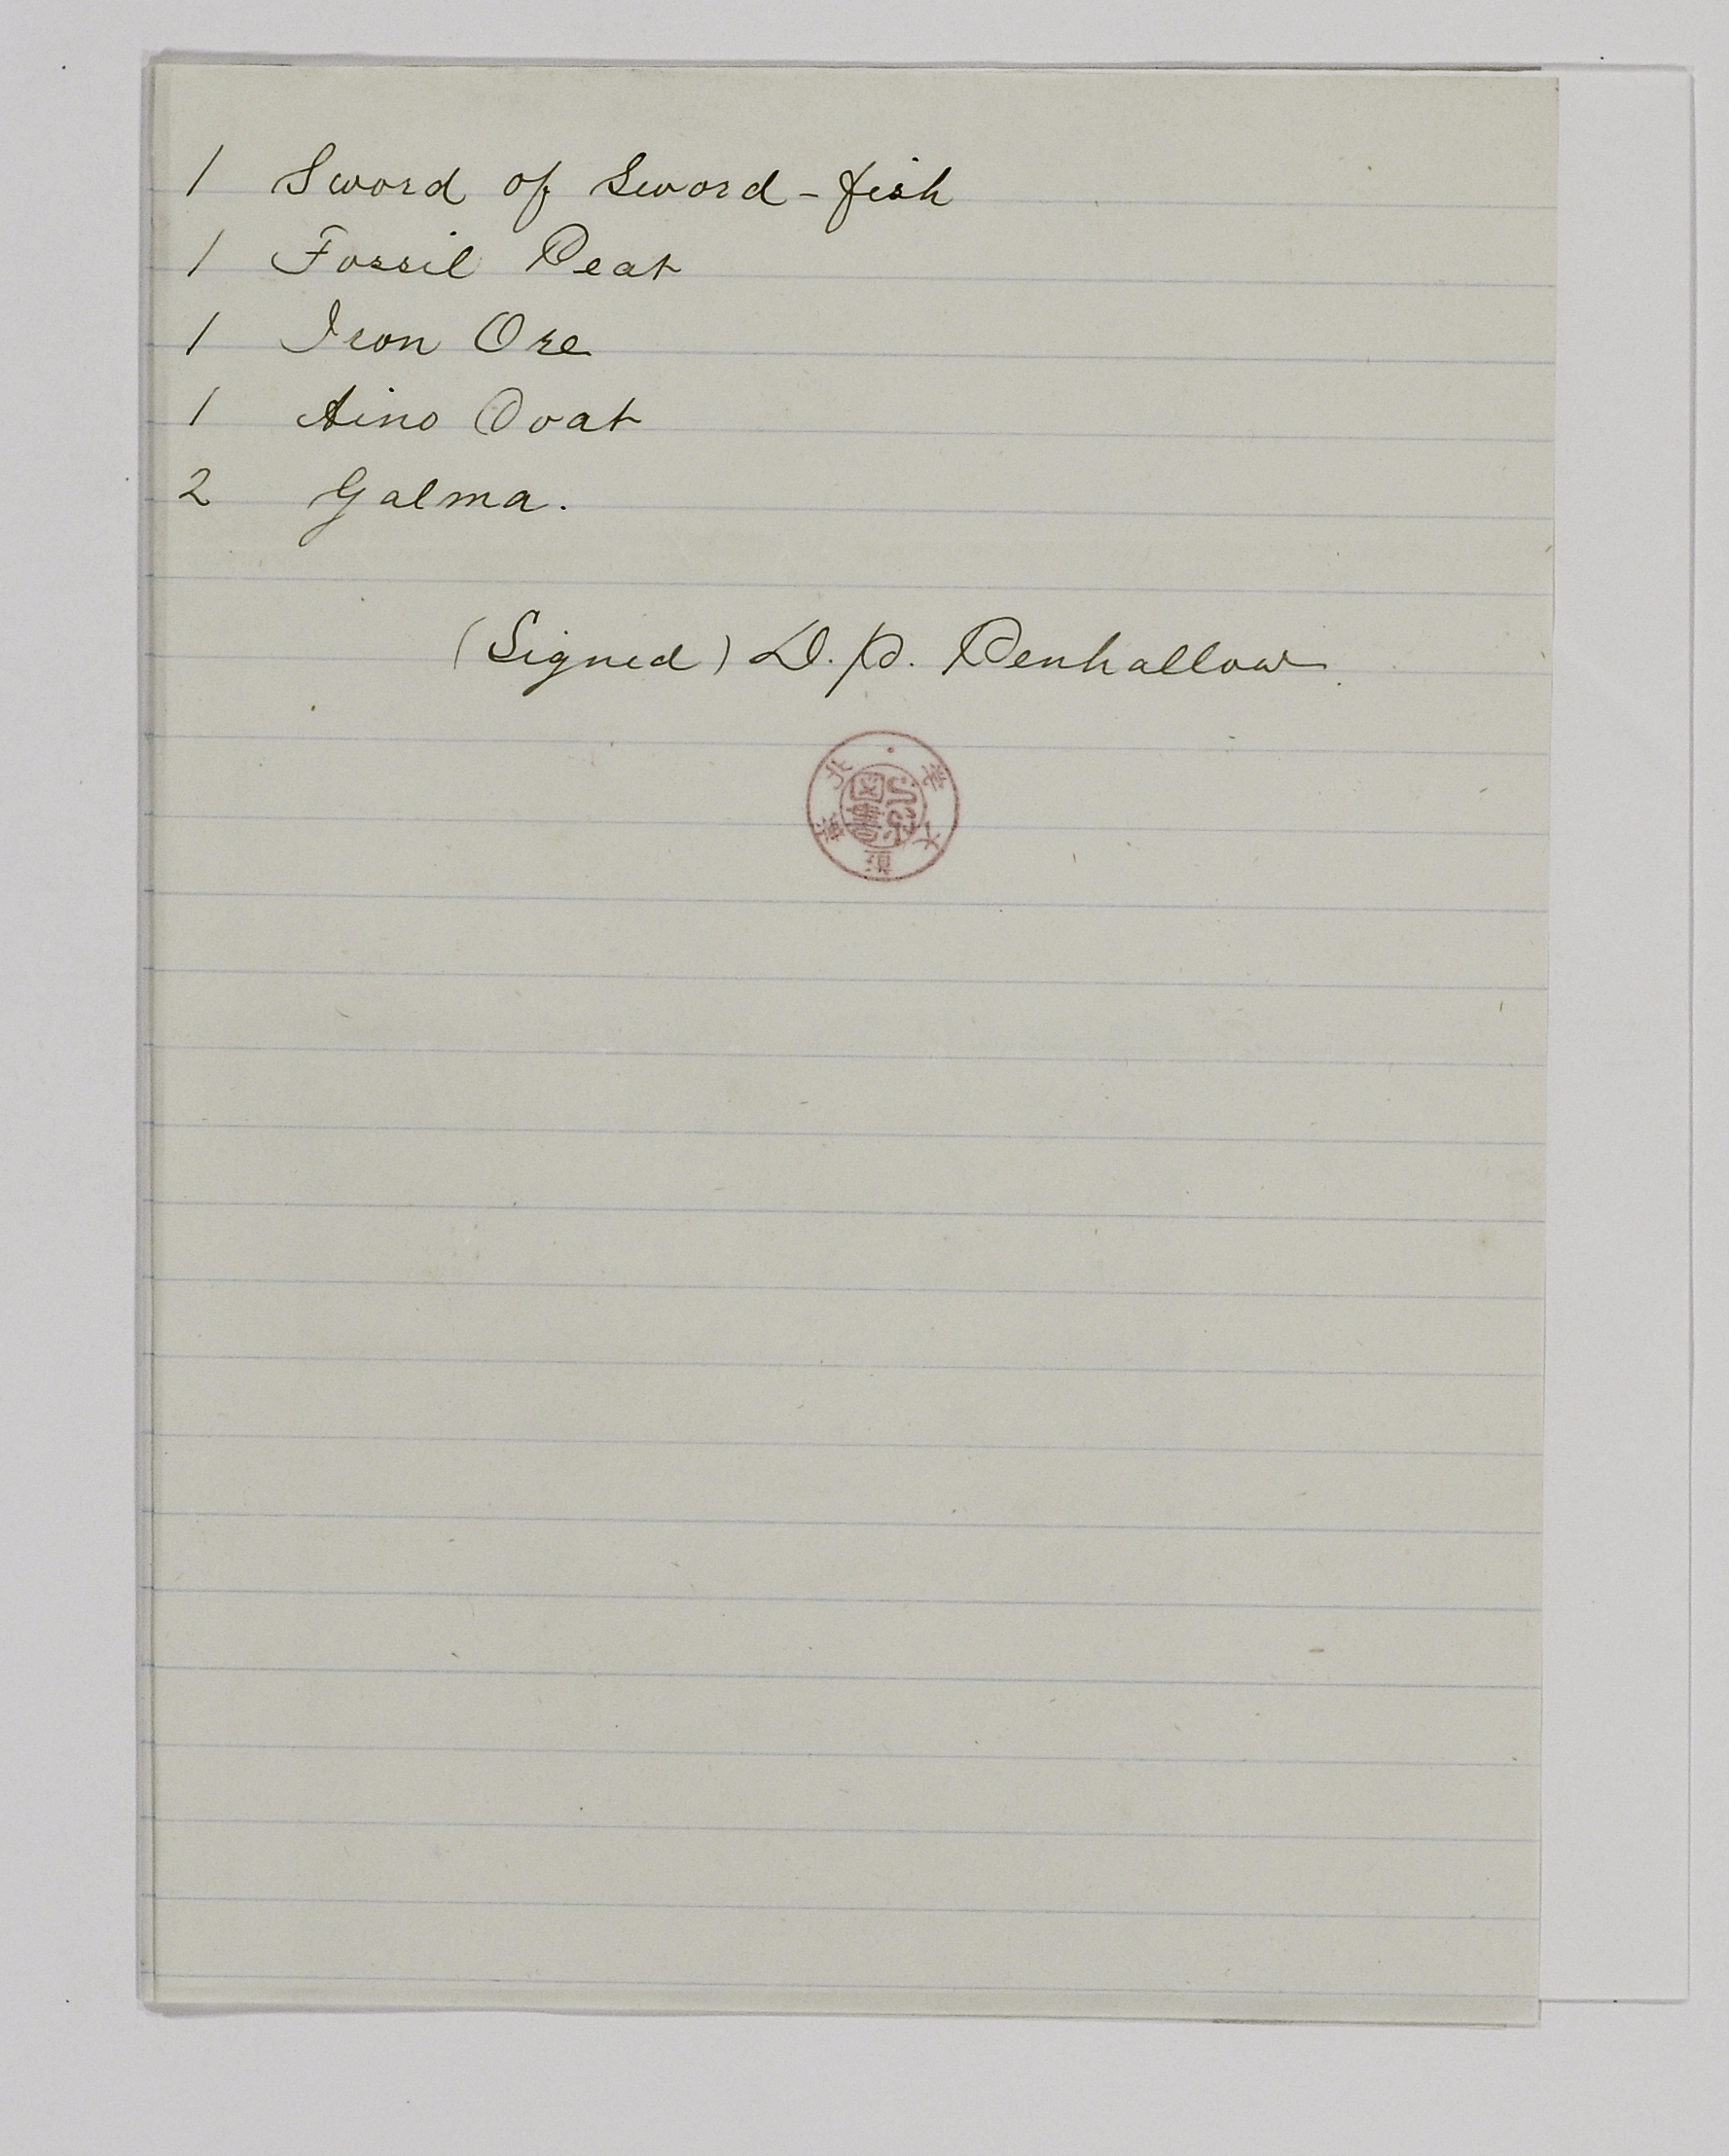 1 Sword of Sword-fish
1 Fossil Peat
1 Iron Ore
1 Aino Coat
2 Galma.
(Signed) D. P. Penhallow
北海道大学
図書